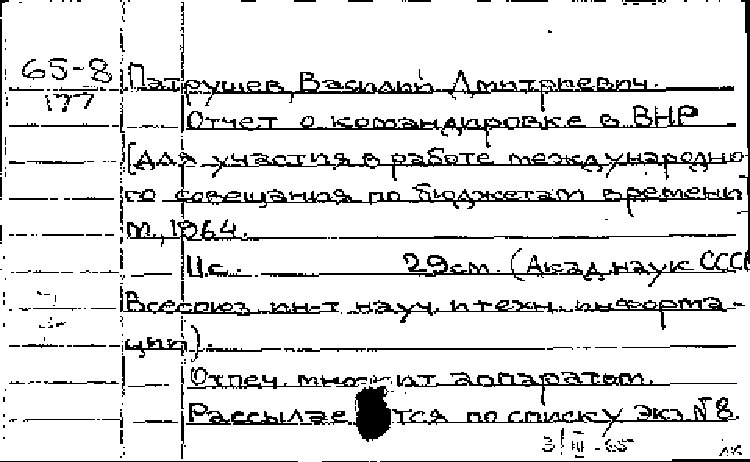 65-8 Патрушев, Василий Дмитриевич.
177
Отчет о командировке в ВНР
[Для участия в работе международно
го совещания по бюджетам времени]
М., 1964.
11 с. 29 см. (Акад. наук СССР
Всесоюз. ин-т науч. и техн. информа-
ции).
Отпеч. множит. аппаратом.
Рассылается по списку Экз. №8.
3/III-65